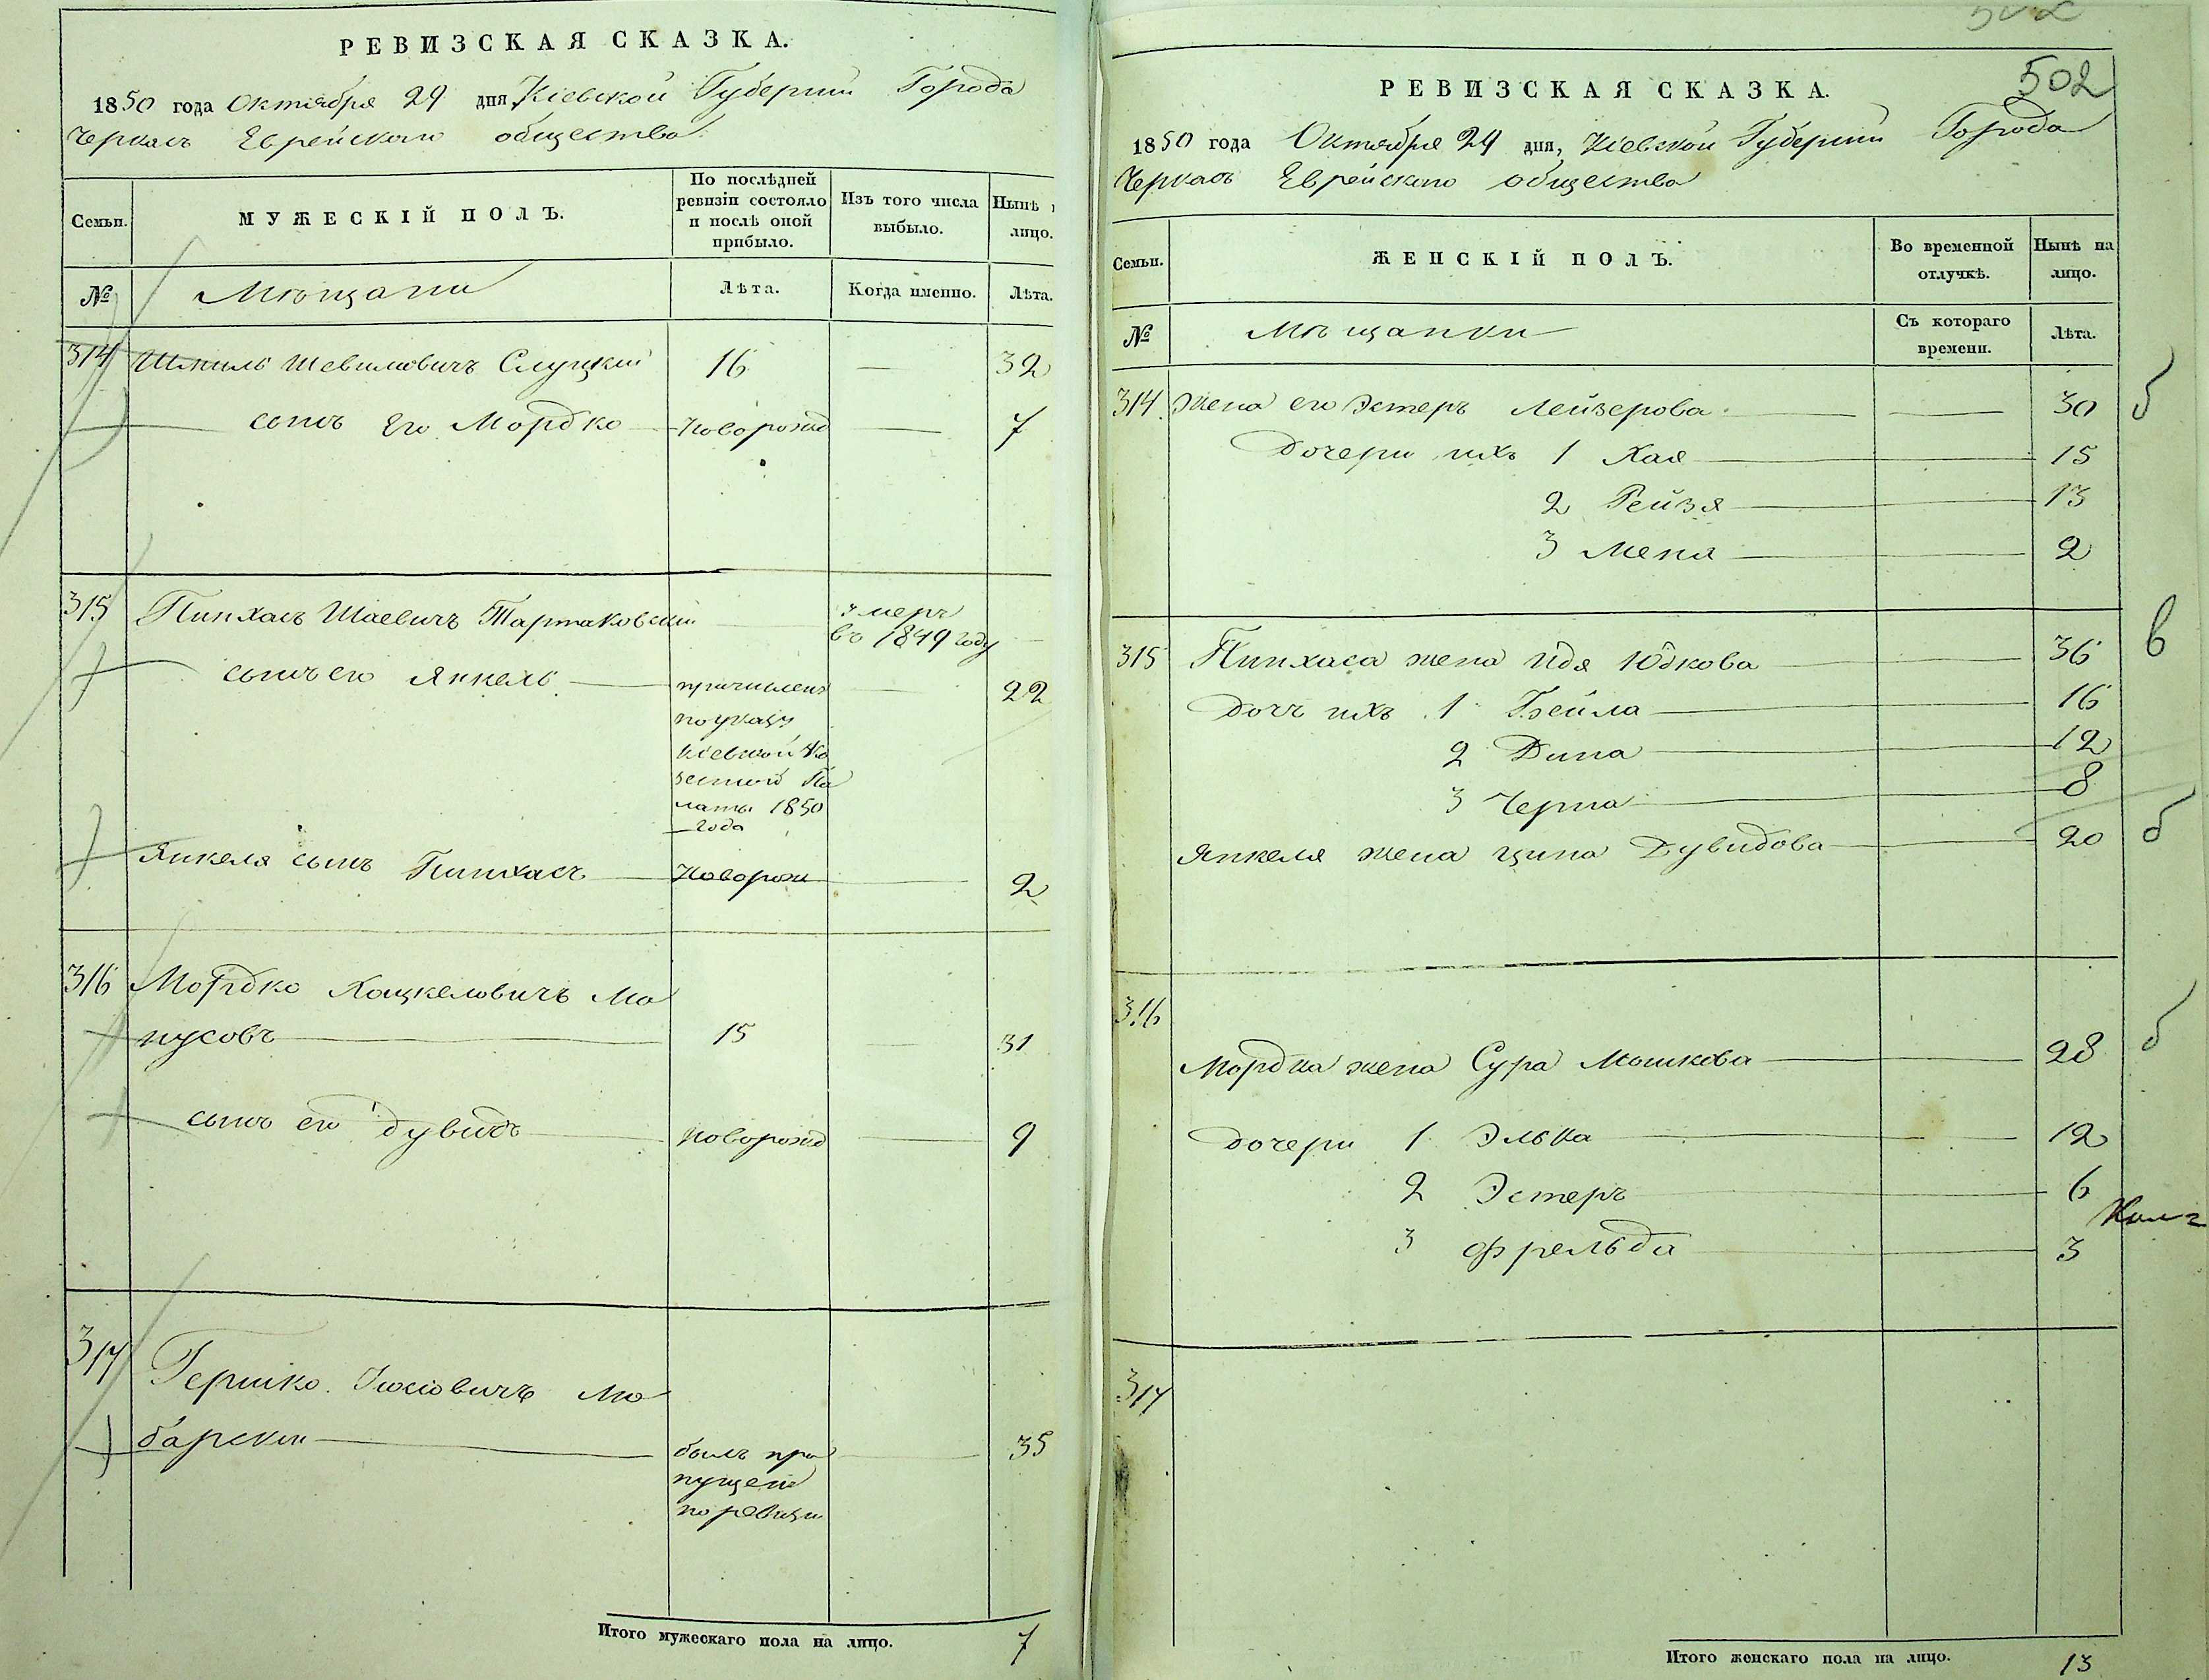 РЕВИЗСКАЯ СКАЗКА.
1850 года Октября 29 дня, Кіевской Губерніи Города
Черкасъ Еврейскаго общества
Семьи.
МУЖЕСКІЙ ПОЛЪ.
По послѣдней
ревизіи состояло
и послѣ оной
прибыло.
Изъ того числа
выбыло.
Нынѣ н
лицо.
№
Мѣщани
Лѣта.
Когда именно.
Лѣта.
314 Шмиль Шевилиовичъ Слуцкій 16 — 32
сынъ Его Мордко новорожд — 7
315 Пинхасъ Шаевичъ Тартаковскій
умеръ
въ 1849 году
сынъ его Янкель 22
причисленъ
по указу
Кіевской Ка
зенной Па
латы 1850
года
Янкеля сынъ Пинхасъ новорож 2
316 Мордко Хацкелевичъ Ма
нусовъ 15 31
сынъ его Дувидъ новорожд 9
317 Гершко Іосіовичъ Лю
барскій 35
былъ про
пущенъ
по ревизіи
Итого мужескаго пола на лицо. 7
502
РЕВИЗСКАЯ СКАЗКА.
1850 года Октября 29 дня, Кіевской Губерніи Города
Черкасъ Еврейскаго общества
Семьи.
ЖЕНСКІЙ ПОЛЪ.
Во временной
отлучкѣ.
Нынѣ на
лицо.
№
Мѣщанки
Съ котораго
времени.
Лѣта.
314 Жена его Эстеръ Лейзерова — 30 б
Дочери ихъ 1 Хая 15
2 Рейзя 13
3 Меня 2
315 Пинхаса жена Идя Юдкова 36 в
Дочъ ихъ 1 Бейла 16
2 Дина 12
3 Черна 8
Янкеля жена Ципа Дувидова 20 б
316
Мордка жена Сура Мошкова 28 б
дочери 1 Элька 12
2 Эстеръ 6
3 Фрейда 3
317
Итого женскаго пола на лицо. 13